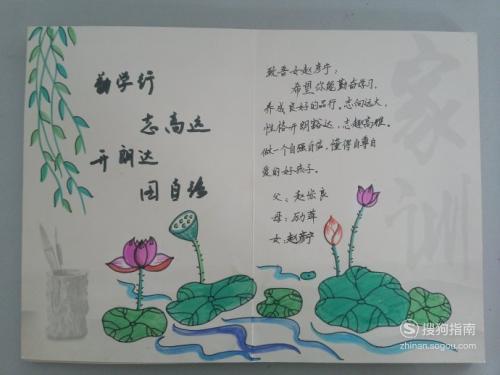 勤学行
志高远
开朗达
自强
致吾女赵彦宁:
希望你能勤奋学习,
养成良好的品行。志向远大,
性格开朗豁达,志趣高雅。
做一个自强自信,懂得自尊自
爱的好孩子。
父:赵宗良
母:励萍
女:赵彦宁
家训
搜狗指南
zhinan.sogou.com